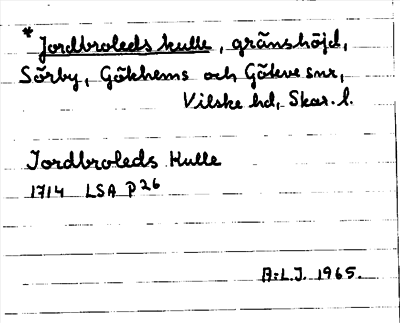 * Jordbroleds kulle, gränshöjd,
Sörby, Gökhems och Gökve snr,
Vilske hd, Skar. l.
Jordbroleds Kulle
1714 LSA P26
A:L.J. 1965.